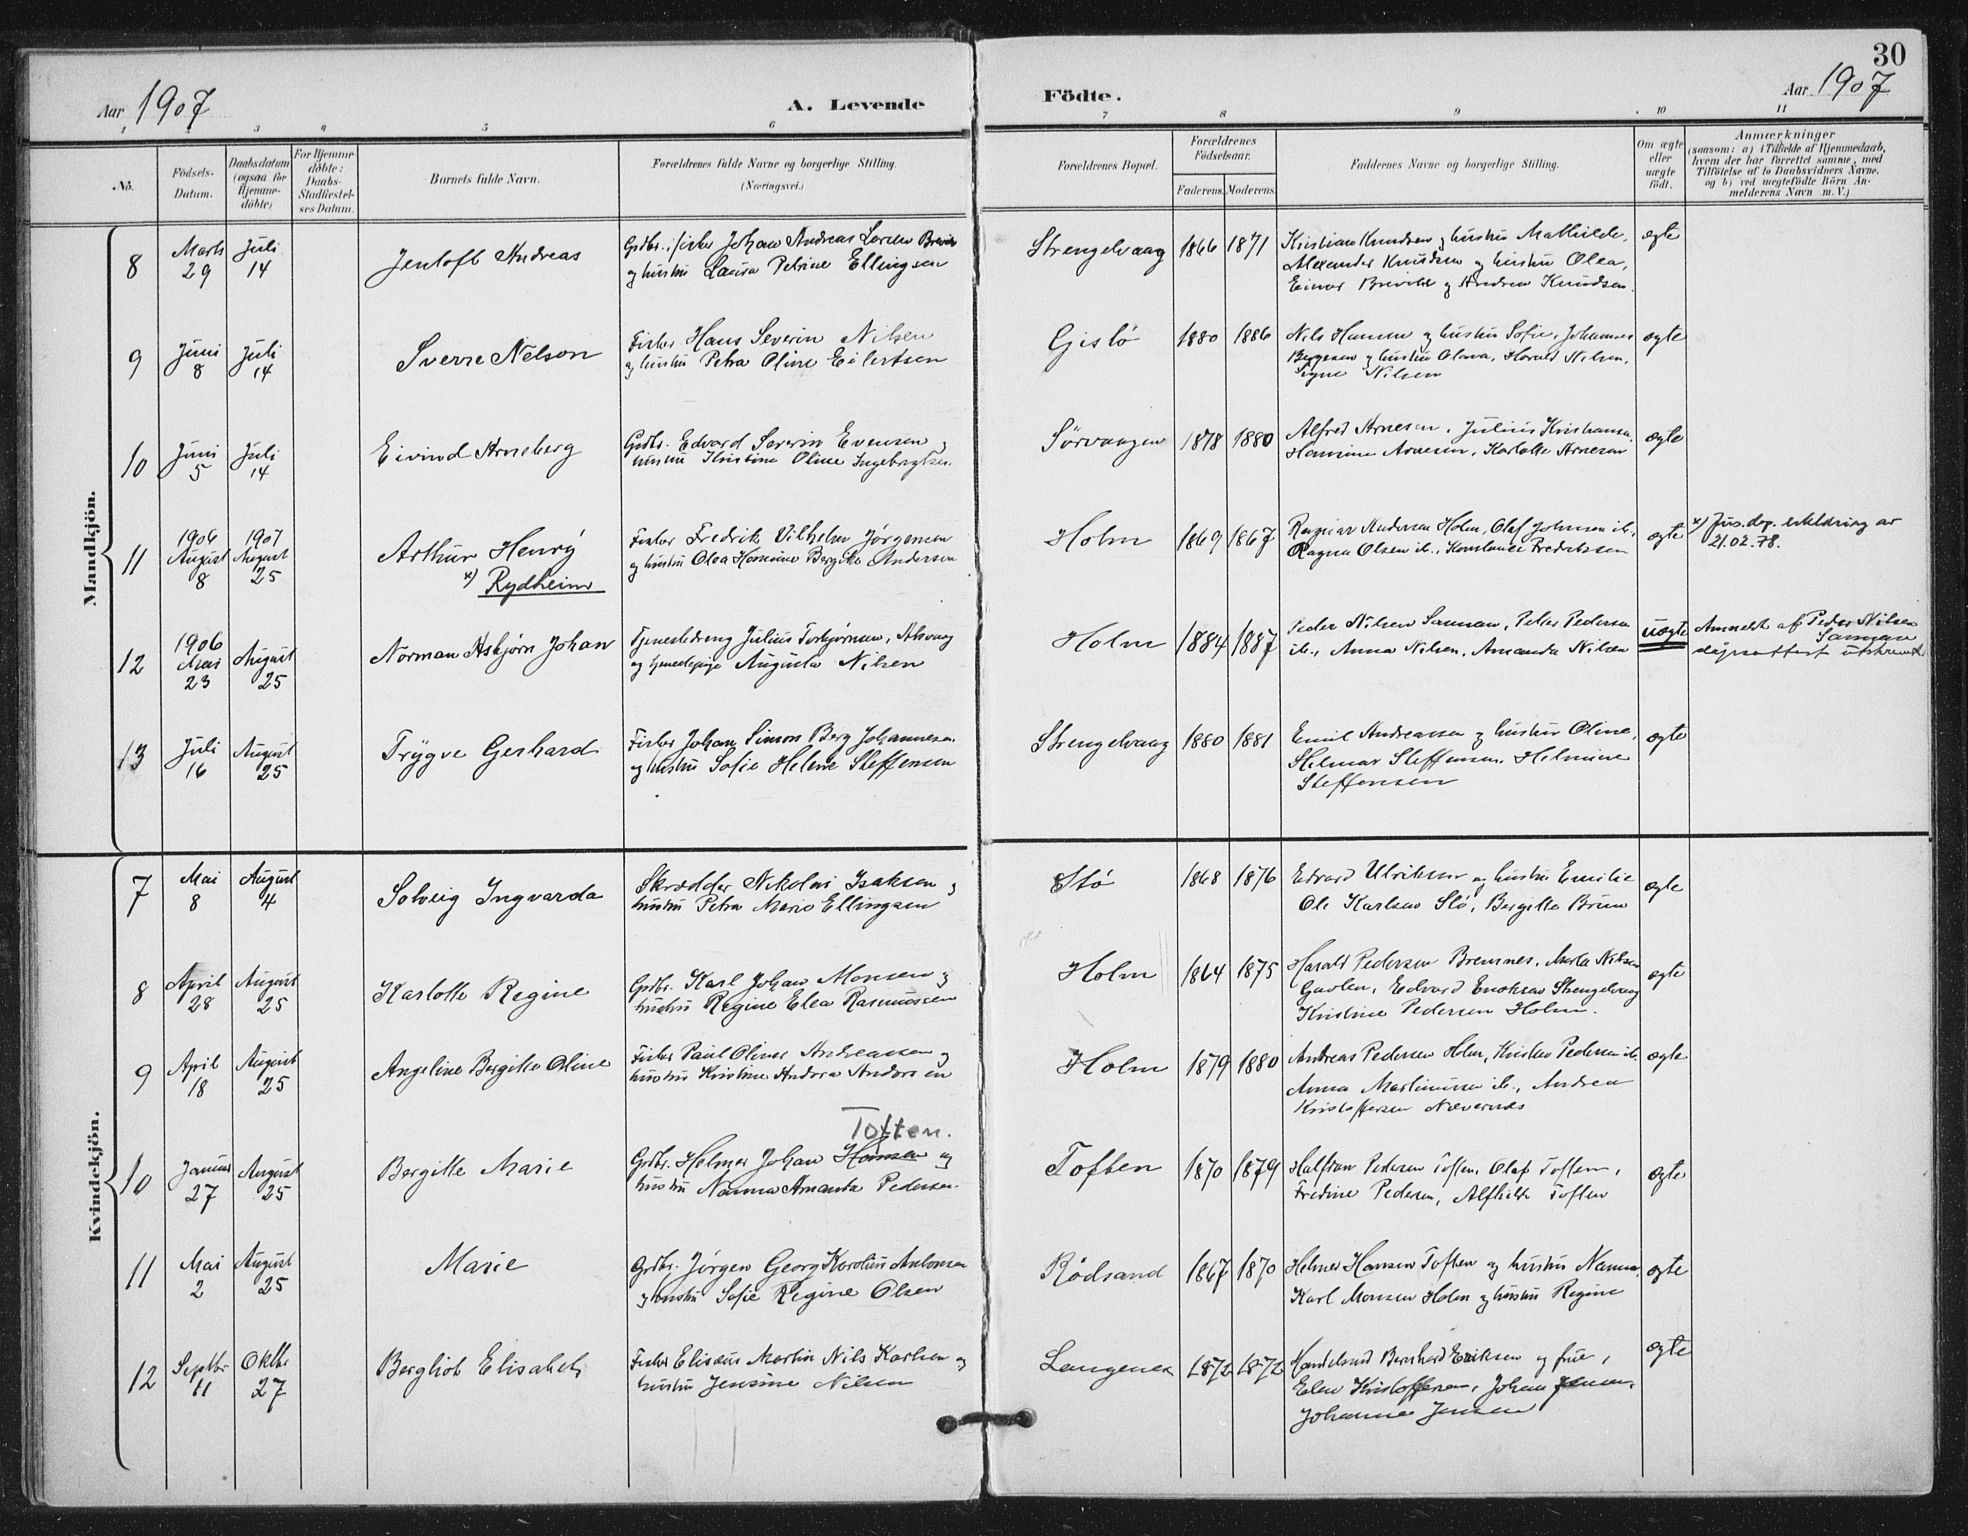 30
Aar 1907
A. Levende
Födte.
Aar 1907
1 2 3 4 5 6 7 8 9 10 11
No.
Födsels-
Datum.
Daabsdatum
(ogsaa for
Hjemme-
döbte)
For Hjemme-
döbte:
Daabs-
Stadfæstel-
ses Datum.
Barnets fulde Navn.
Forældrenes fulde Navne og borgerlige Stilling.
(Næringsvei.)
Forældrenes Bopæl.
Forældrenes
Födselsaar.
Faderens. Moderens.
Faddernes Navne og borgerlige Stilling.
Om ægte
eller
uægte
födt.
Anmærkninger
(saasom: a) i Tilfælde af Hjemmedaab,
hvem der har forrettet samme, med
Tilföielse af to Daabsvidners Navne,
og b) ved uægtefödte Börn An-
melderens Navn m. V.)
Mandkjön.
8
Marts
29
Juli
14
Jentoft Andreas
Grdbr., fisker Johan Andreas Lorem
og hustru Laura Petrine Ellingsen
Strengelvaag
1866 1871
Kristian Knudsen og hustru Mathilde,
Alexander Knudsen og hustru Olea,
Einar Breivik og Andrea Knudsen.
ægte
9
Juni
8
Juli
14
Sverre Nelson
Fisker Hans Severin Nilsen
og hustru Petra Oline Eilertsen
Gislö
1880 1886
Nils Hansen og hustru Sofie, Johannes
Borgesen og hustru Olava, Harald Nilsen,
Signe Nilsen
ægte
10
Juni
5
Juli
14
Eivind Arneberg
Grdbr. Edvard Severin Evensen og
hustru Kristine Oline Ingebrigtsen.
Sörvaagen
1878 1880
Alfred Arnesen, Julius Kristiansen,
Hansine Arnesen, Karlotte Arnesen
ægte
11
1906
August
8
1907
August
25
Arthur Henry
x) Rydheim
Fisker Fredrik Vilhelm Jørgensen
og hustru Olea Hansine Bergitte Andersen
Holm
1869 1867
Ragnar Andersen Holm, Olaf Johnsen ib.,
Ragna Olsen ib., Konstance Fredriksen
ægte
x) Jus.dep. erklæring av
21.02.78.
12
1906
Mai
23
August
25
Norman Asbjørn Johan
Tjenestedreng Julius Torbjørnsen, Alsvaag
og tjenestepige Augusta Nilsen
Holm
1884 1887
Peder Nilsen Sanman, Peter Pedersen
ib., Anna Nilsen, Amanda Nilsen
uægte
Anmeldt af Peder Nilsen
Sanman
dåpsattest utskrevet
13
Juli
16
August
25
Trygve Gerhard
Fisker Johan Simon Berg Johannesen
og hustru Sofie Helene Steffensen
Strengelvaag
1880 1881
Emil Andreassen og hustru Oline,
Hilmar Steffensen, Helmine
Steffensen
ægte
Kvindekjön.
7
Mai
8
August
4
Solveig Ingvarda
Skrædder Nikolai Isaksen og
hustru Petra Marie Ellingsen
Stö
1868 1876
Edvard Ulriksen og hustru Emilie
Ole Karlsen Stö, Bergitte Bruun
ægte
8
April
28
August
25
Karlotte Regine
Grdbr. Karl Johan Monsen og
hustru Regine Elea Rasmussen
Holm
1864 1875
Harald Pedersen Bremnes, Marta Nilsen
Gaolen, Edvard Enoksen Strengelvaag
Kristine Pedersen Holm.
ægte
9
April
18
August
25
Angeline Bergitte Oline
Fisker Paul Oliver Andreassen og
hustru Kristine Andora Andersen
Holm
1879 1880
Andreas Pedersen Holm, Kristen Pedersen ib.,
Anna Martinussen ib., Andrea
Kristoffersen Nævernes
ægte
10
Januar
27
August
25
Bergitte Marie
Toften.
Grdbr. Helmer Johan Hansen og
hustru Nanna Amanda Pedersen.
Toften
1870 1879
Halfdan Pedersen Toften, Olaf Toften,
Fredine Pedersen, Alfhilde Toften
ægte
11
Mai
2
August
25
Marie
Grdbr. Jörgen Georg Karolius Antonsen
og hustru Sofie Regine Olsen
Rödsand
1867 1870
Helmer Hansen Toften og hustru Nanna,
Karl Monsen Holm og hustru Regine
ægte
12
Septbr.
11
Oktbr.
27
Bergliot Elisabet
Fisker Elisæus Martin Nils Karlsen og
hustru Jensine Nilsen
Langenes
1872 1872
Handelsmd Bernhard Eriksen og frue,
Elen Kristoffersen, Johan Jensen,
Johanne Jensen
ægte